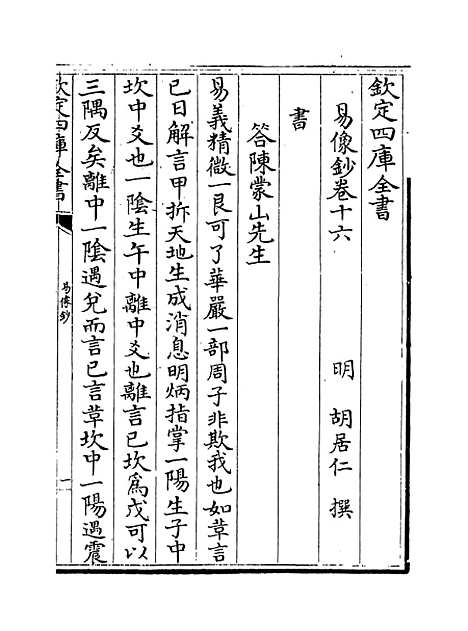 欽定四庫全書
易像鈔卷十六
明　胡居仁　撰
書
答陳蒙山先生
易義精微一艮可了華嚴一部周子非欺我也如革言
已日解言甲拆天地生成消息明炳指掌一陽生子中
坎中爻也一陰生午中離中爻也離言已坎為戊可以
三隅反矣離中一陰遇兌而言已言革坎中一陽遇震
欽定四庫全書
易像鈔
一